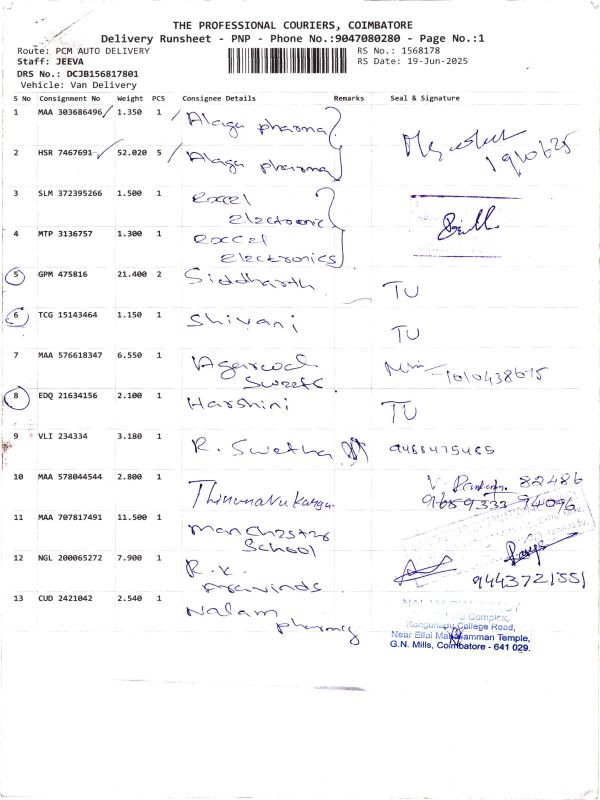 THE PROFESSIONAL COURIERS, COIMBATORE
Delivery Runsheet - PNP - Phone No.:9047080280 - Page No.:1
Route: PCM AUTO DELIVERY RS No.: 1568178
Staff: JEEVA RS Date: 19-Jun-2025
DRS No.: DCJB156817801
Vehicle: Van Delivery
S No Consignment No Weight PCS Consignee Details Remarks Seal & Signature
1 MAA 303686496 1.350 1 Alaga pharma
2 HSR 7467691 52.020 5 Alaga pharma 19/06/25
3 SLM 372395266 1.500 1 Excel
Electronic
4 MTP 3136757 1.300 1 Excel
Electronics
5 GPM 475816 21.400 2 Siddharth TU
6 TCG 15143464 1.150 1 Shivani TU
7 MAA 576618347 6.550 1 Agarwal
Sweets
8 EDQ 21634156 2.100 1 Harshini TU
9 VLI 234334 3.180 1 R. Swetha
10 MAA 578044544 2.800 1 82486
94096
11 MAA 707817491 11.500 1 Manchester
School
12 NGL 200065272 7.900 1 R.K.
Aravinds
13 CUD 2421042 2.540 1 Nalam
pharmcy
Complex,
Kongunadu College Road,
Temple,
G.N. Mills, Coimbatore - 641 029.